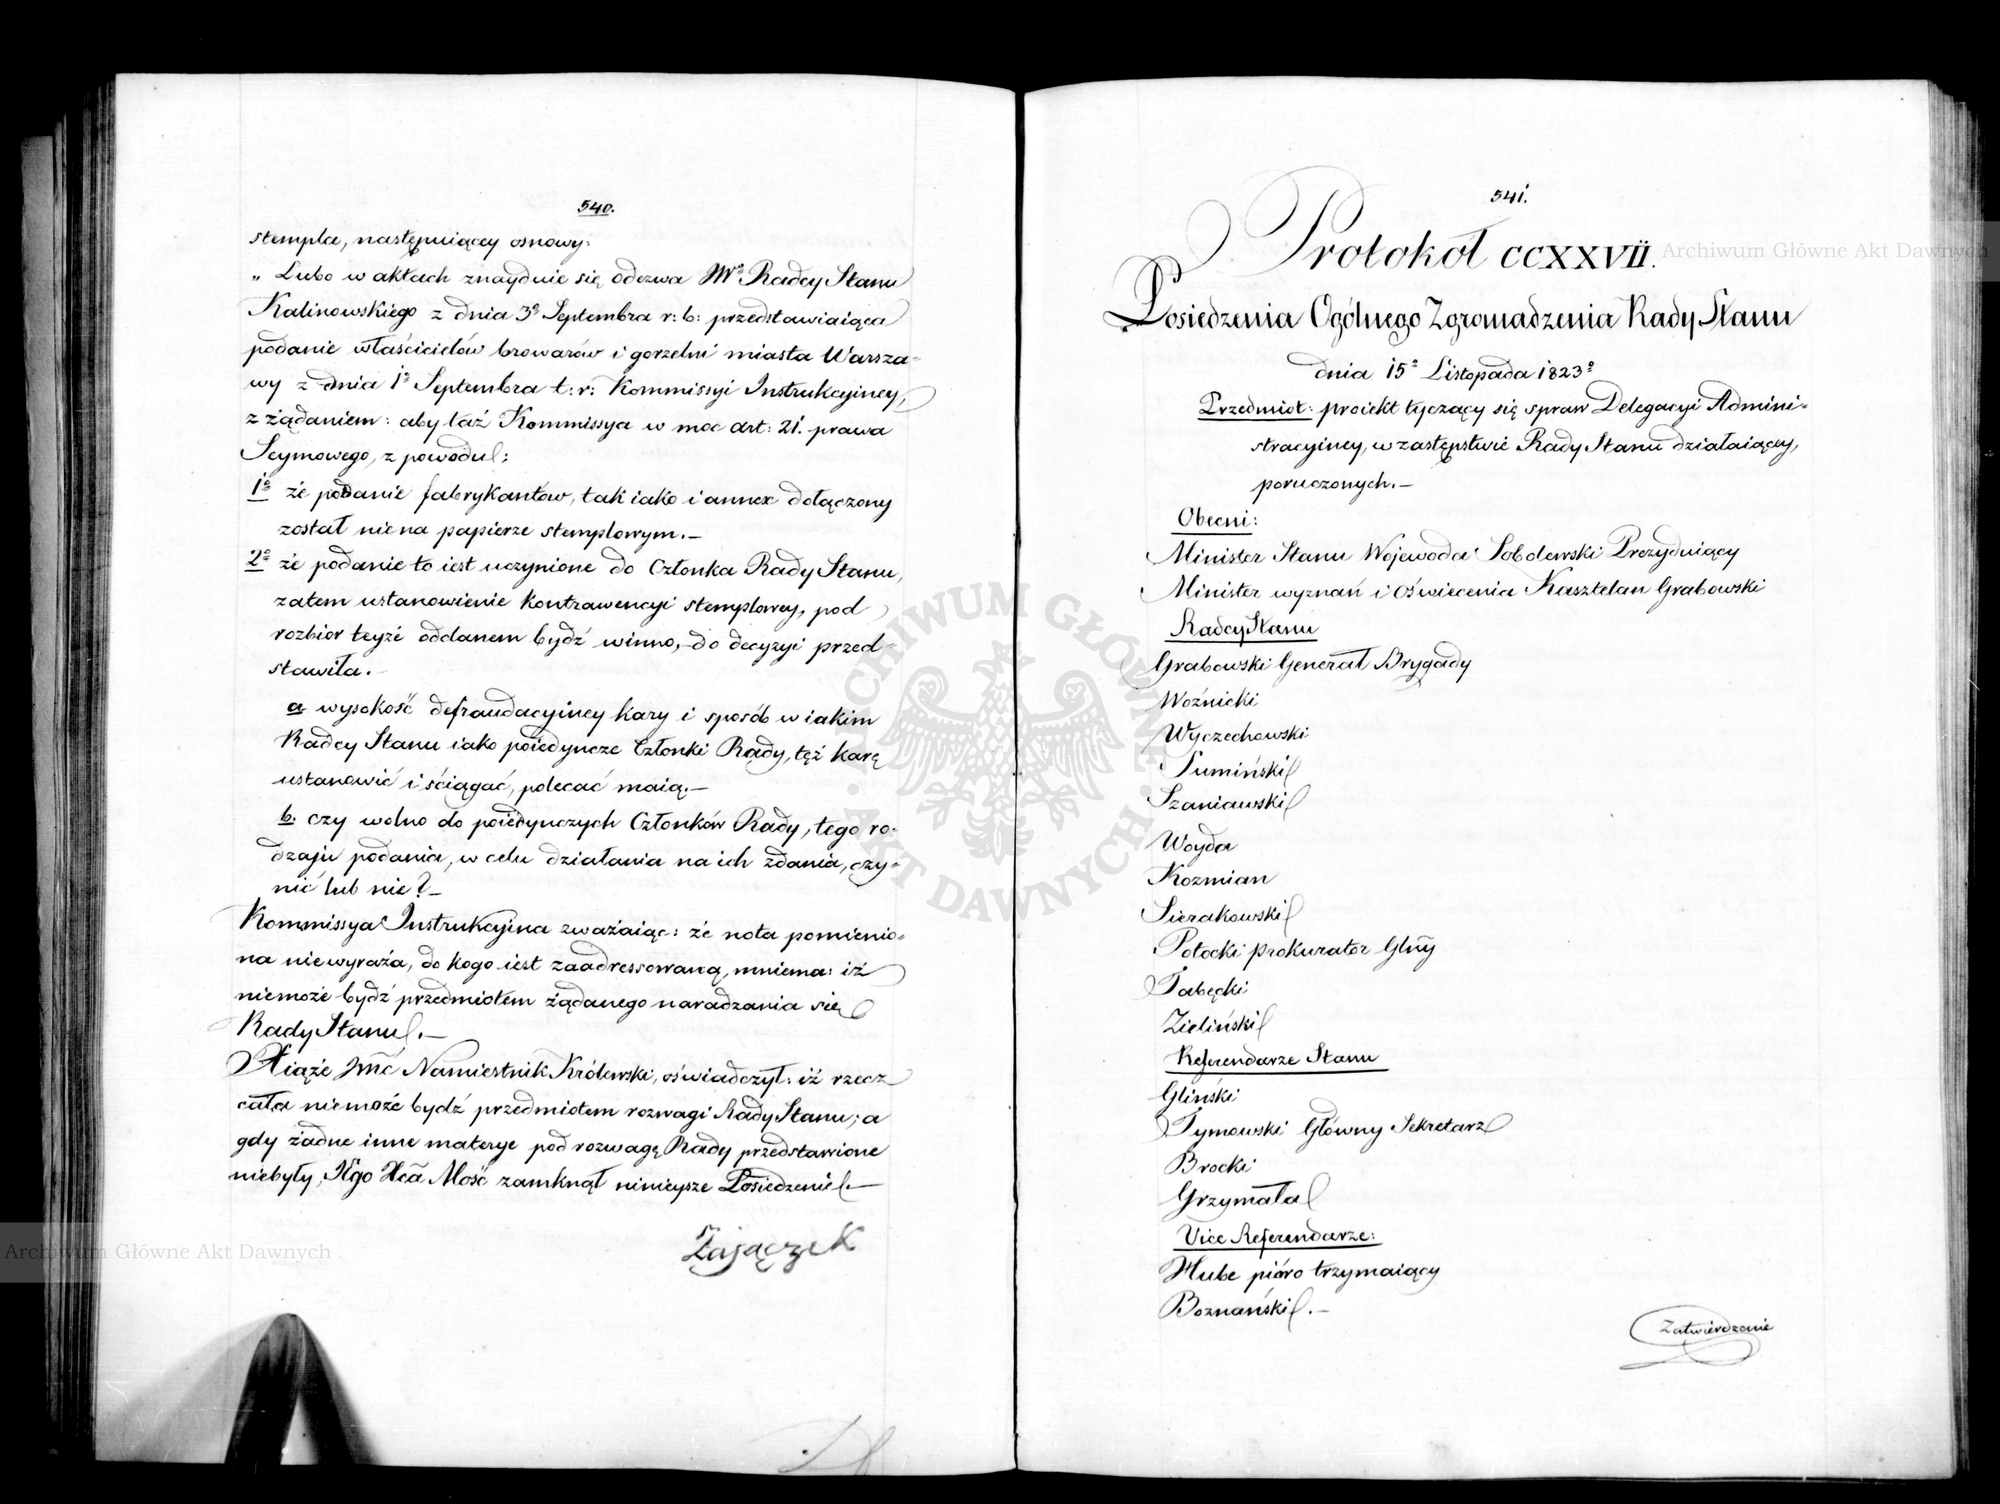 540.
stempla, następuiącey osnowy:
„ Lubo w aktach znayduie się odezwa Wo Radcy Stanu
Kalinowskiego z dnia 3o Septembra r: b: przedstawiaiąca
podanie właścicielów browarów i gorzelni miasta Warsza-
wy z dnia 1o Septembra t: r: Kommissyi Instrukcyiney,
z żądaniem: aby taż Kommissya w moc art: 21. prawa
Seymowego, z powodu:
1o że podanie fabrykantów, tak iako i annex dołączony
został nie na papierze stemplowym.—
2o że podanie to iest uczynione do Członka Rady Stanu,
zatem ustanowienie kontrawencyi stemplowey, pod
rozbior teyże oddanem bydź winno, do decyzyi przed-
stawiła.—
a wysokość defraudacyiney kary i sposób w iakim
Radcy Stanu iako poiedyncze Członki Rady, tęż karę
ustanowić i ściągać, polecać maią.—
b. czy wolno do poiedynczych Członków Rady, tego ro-
dzaju podania, w celu działania na ich zdania, czy-
nić lub nie?—
Kommissya Instrukcyina zważaiąc: że nota pomienio-
na nie wyraża, do kogo iest zaadressowaną, mniema: iż
niemoże bydź przedmiotem żądanego naradzania się
Rady Stanu.—
Xiąże Jmć Namiestnik Królewski, oświadczył: iż rzecz
cała niemoże bydź przedmiotem rozwagi Rady Stanu; a
gdy żadne inne materye pod rozwagę Rady przedstawione
niebyły, Jego Xca Mość zamknął nimieysze Posiedzenie.—
Zajączek
541.
Protokół CCXXVII.
Posiedzenia Ogólnego Zgromadzenia Rady Stanu
dnia 15o Listopada 1823o
Przedmiot: proiekt tyczący się spraw Delegacyi Admini-
stracyiney, w zastępstwie Rady Stanu działaiącey,
poruczonych.—
Obecni:
Minister Stanu Wojewoda Sobolewski Prezyduiący
Minister wyznań i oświecenia Kasztelan Grabowski
Radcy Stanu
Grabowski Generał Brygady
Woźnicki
Wyczechowski
Tumiński
Szaniawski
Woyda
Kozmian
Sierakowski
Potocki prokurator Glny
Tabęcki
Zieliński
Referendarze Stanu
Gliński
Tymowski Główny Sekretarz
Brocki
Grzymała
Vice Referendarze:
Hube pióro trzymaiący
Boznański.—
Zatwierdzenie
Archiwum Główne Akt Dawnych
Archiwum Główne Akt Dawnych
ARCHIWUM GŁÓWNE AKT DAWNYCH